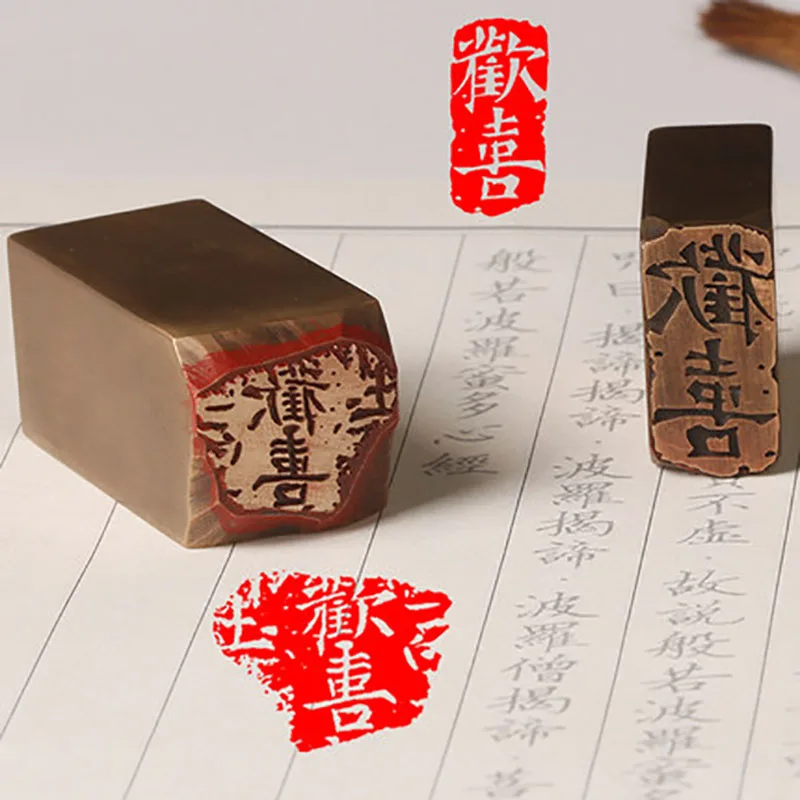 歡喜
歡喜
不虛·故說般若波羅蜜
咒曰·揭諦揭諦·波羅揭諦·波羅僧揭諦·菩
般若波羅蜜多心經
歡喜
歡喜